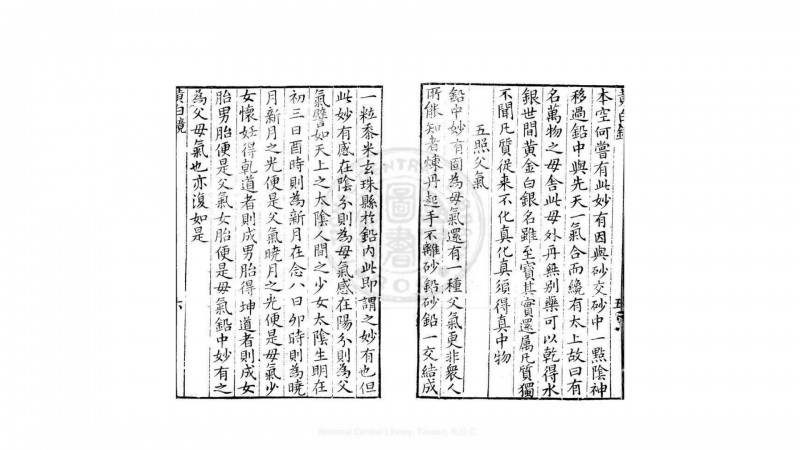 本空何嘗有此妙有因與砂交砂中一點陰神
移過鉛中與先天一氣合而纔有太上故曰有
名萬物之母舍此母外再無別藥可以乾得水
銀世間黃金白銀名雖至寶其實還属凡質獨
不聞凡質從來不化真化真須得真中物
五照父氣
鉛中妙有固為母氣還有一種父氣更非衆人
所能知者煉丹起手不離砂鉛砂鉛一交結成
一粒黍米玄珠縣於鉛內此即謂之妙有也但
此妙有感在陰分則為母氣感在陽分則為父
氣譬如天上之太陰人間之少女太陰生明在
初三日酉時則為新月在念八日卯時則為曉
月新月之光便是父氣曉月之光便是母氣少
女懷姙得乾道者則成男胎得坤道者則成女
胎男胎便是父氣女胎便是母氣鉛中妙有之
為父母氣也亦復如是
黃白鏡
六
National Central Library, Taiwan, R.O.C.